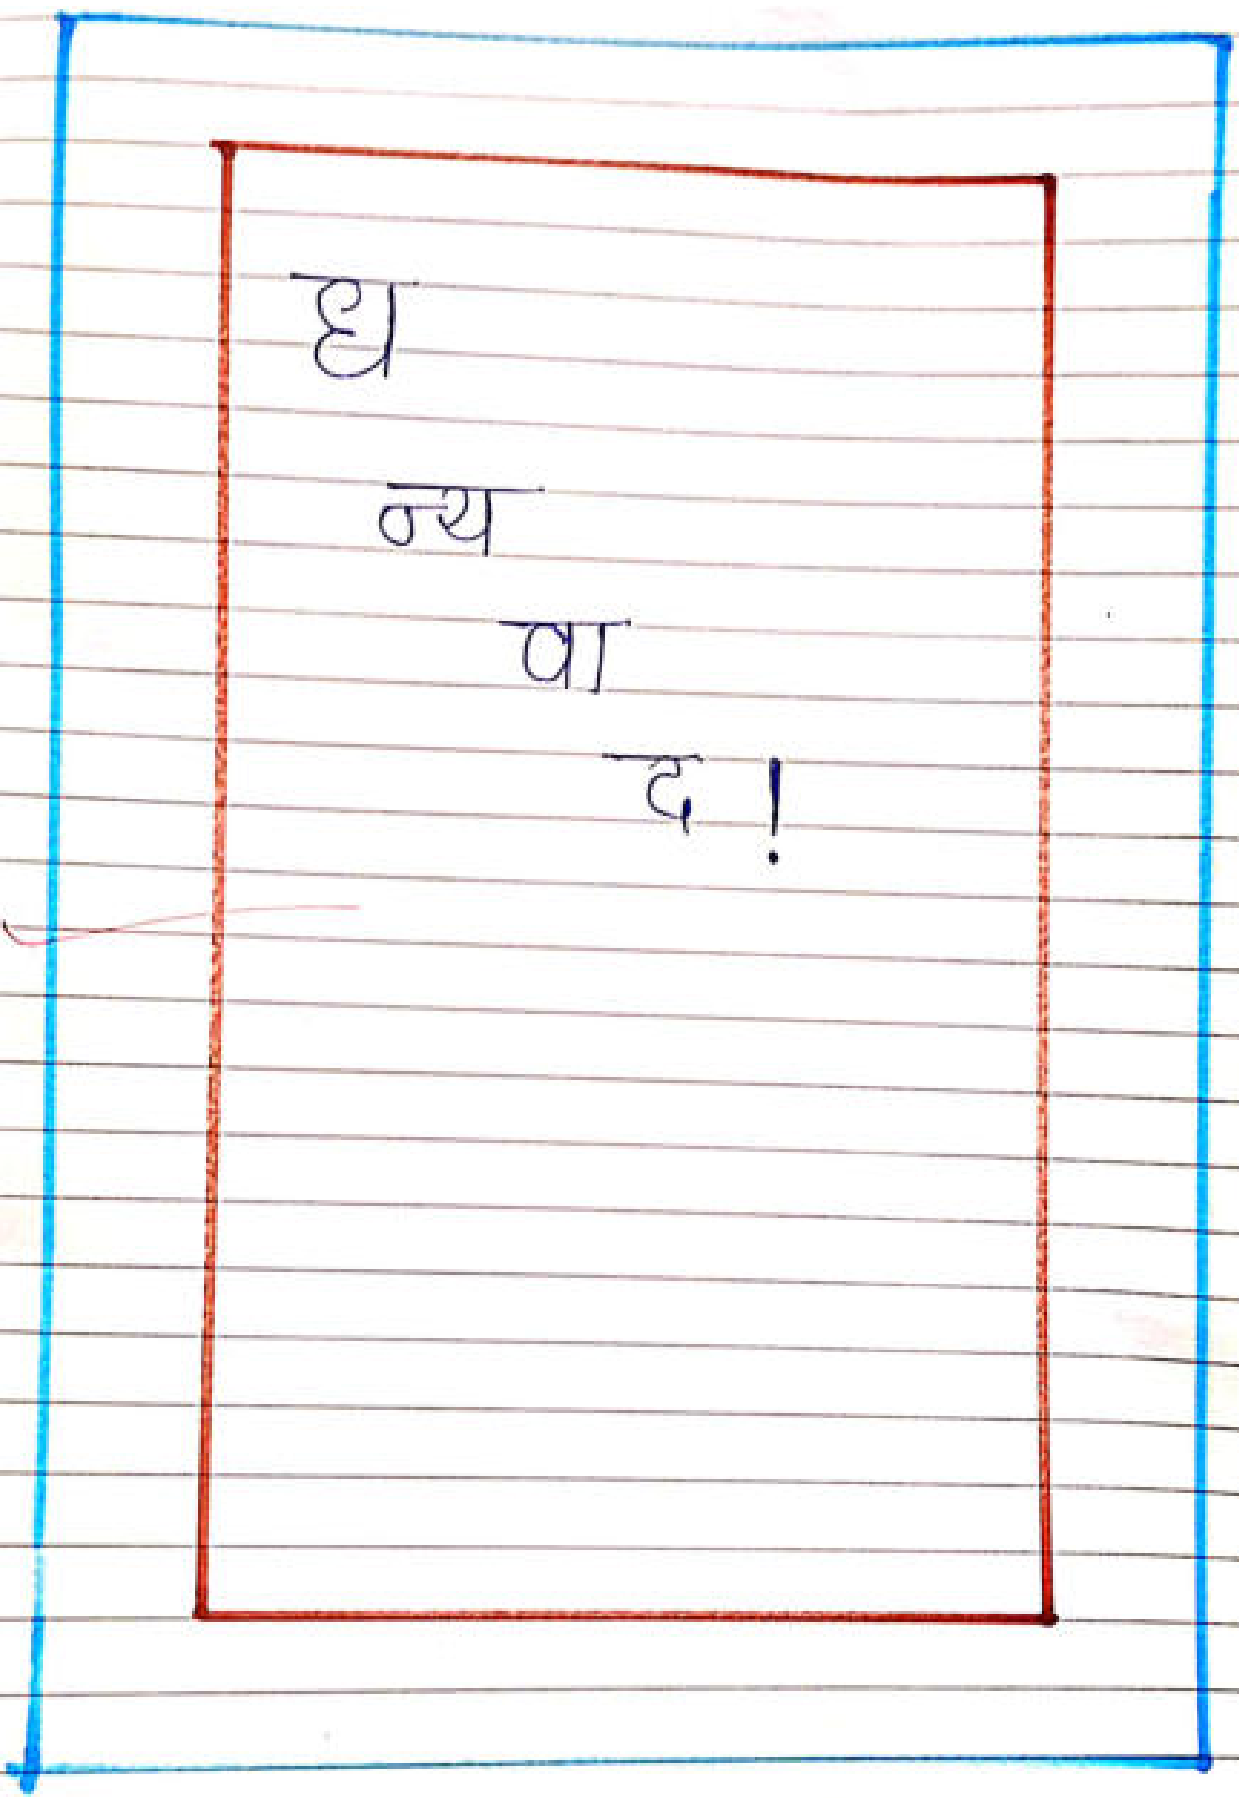 ध
न्य
वा
द !